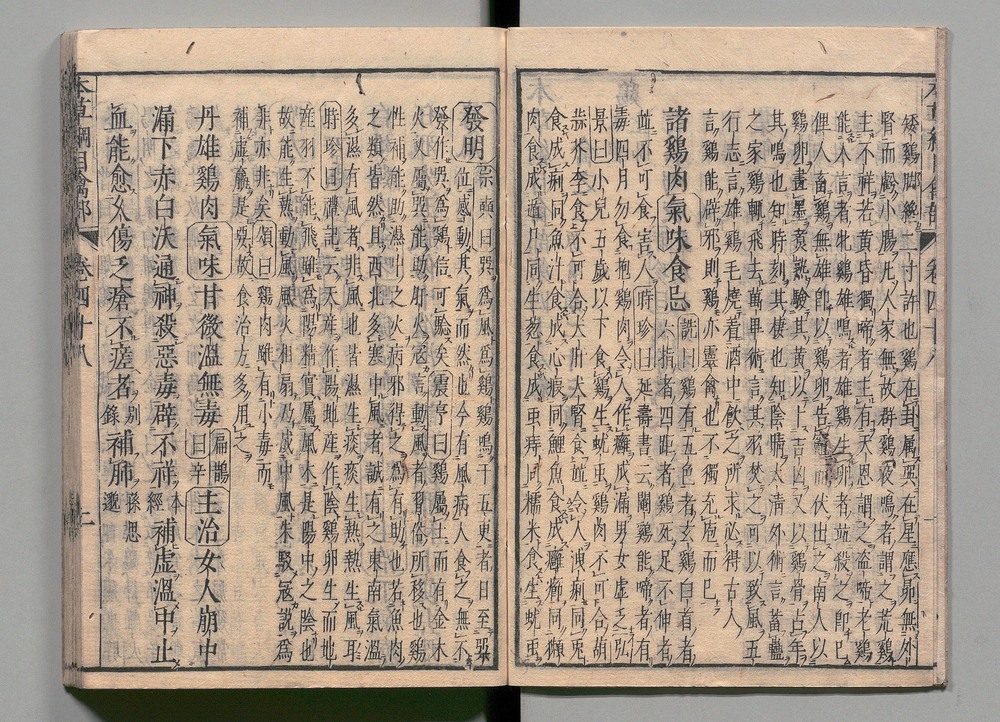 矮雞脚纔二寸許也雞在卦属巽在星應昴無外
腎而虧小腸凡人家無故群雞夜鳴者謂之荒雞
主不祥若黄昏獨啼者主有天恩謂之盗啼老雞
能人言者牝雞雄鳴者雄雞生卵者竝殺之即已
俚人畜雞無雄即以雞卵告竈而伏出之南人以
雞卵畫墨煮熟驗其黄以卜吉凶又以雞骨占年
其鳴也知時刻其棲也知陰晴太清外術言蓄蠱
之家雞輒飛去萬畢術言其羽焚之可以致風五
行志言雄雞毛燒着酒中飲之所求必得古人
言雞能辟邪則雞亦靈禽也不獨充庖而已
諸雞肉氣味食忌詵曰雞有五色者玄雞白首者
六指者四距者雞死足不伸者
竝不可食害人時珍曰延壽書云閹雞能啼者有
毒四月勿食抱雞肉令人作癰成漏男女虚乏弘
景曰小兒五歲以下食雞生蚘虫雞肉不可合葫
蒜芥李食不可合犬肝犬腎食竝令人洩痢同兎
食成痢同魚汁食成心瘕同鯉魚食成癰癤同獺
肉食成遁尸同生葱食成虫痔同糯米食生蚘虫
發明宗奭曰巽爲風爲雞雞鳴于五更者日至巽
位感動其氣而然也今有風病人食之無不
發作巽爲雞信可驗矣震亨曰雞屬土而有金木
火又屬巽能助肝火寇言動風者習俗所移也雞
性補能助濕中之火病邪得之爲有助也若魚肉
之類皆然且西北多寒中風者誠有之東南氣溫
多濕有風者非風也皆濕生痰痰生熱熱生風耳
時珍曰禮記云天産作陽地産作陰雞卵生而地
産羽不能飛雖爲陽精實屬風木是陽中之陰也
故能生熱動風風火相扇乃成中風朱駁寇説爲
非亦非矣頌曰雞肉雖有小毒而
補虚羸是要故食治方多用之
丹雄雞肉氣味甘微溫無毒扁鵲曰辛主治女人崩中
漏下赤白沃通神殺惡毒辟不祥本經補虚溫中止
血能愈久傷乏瘡不瘥者别錄補肺孫思邈
本草綱目禽部 卷四十八